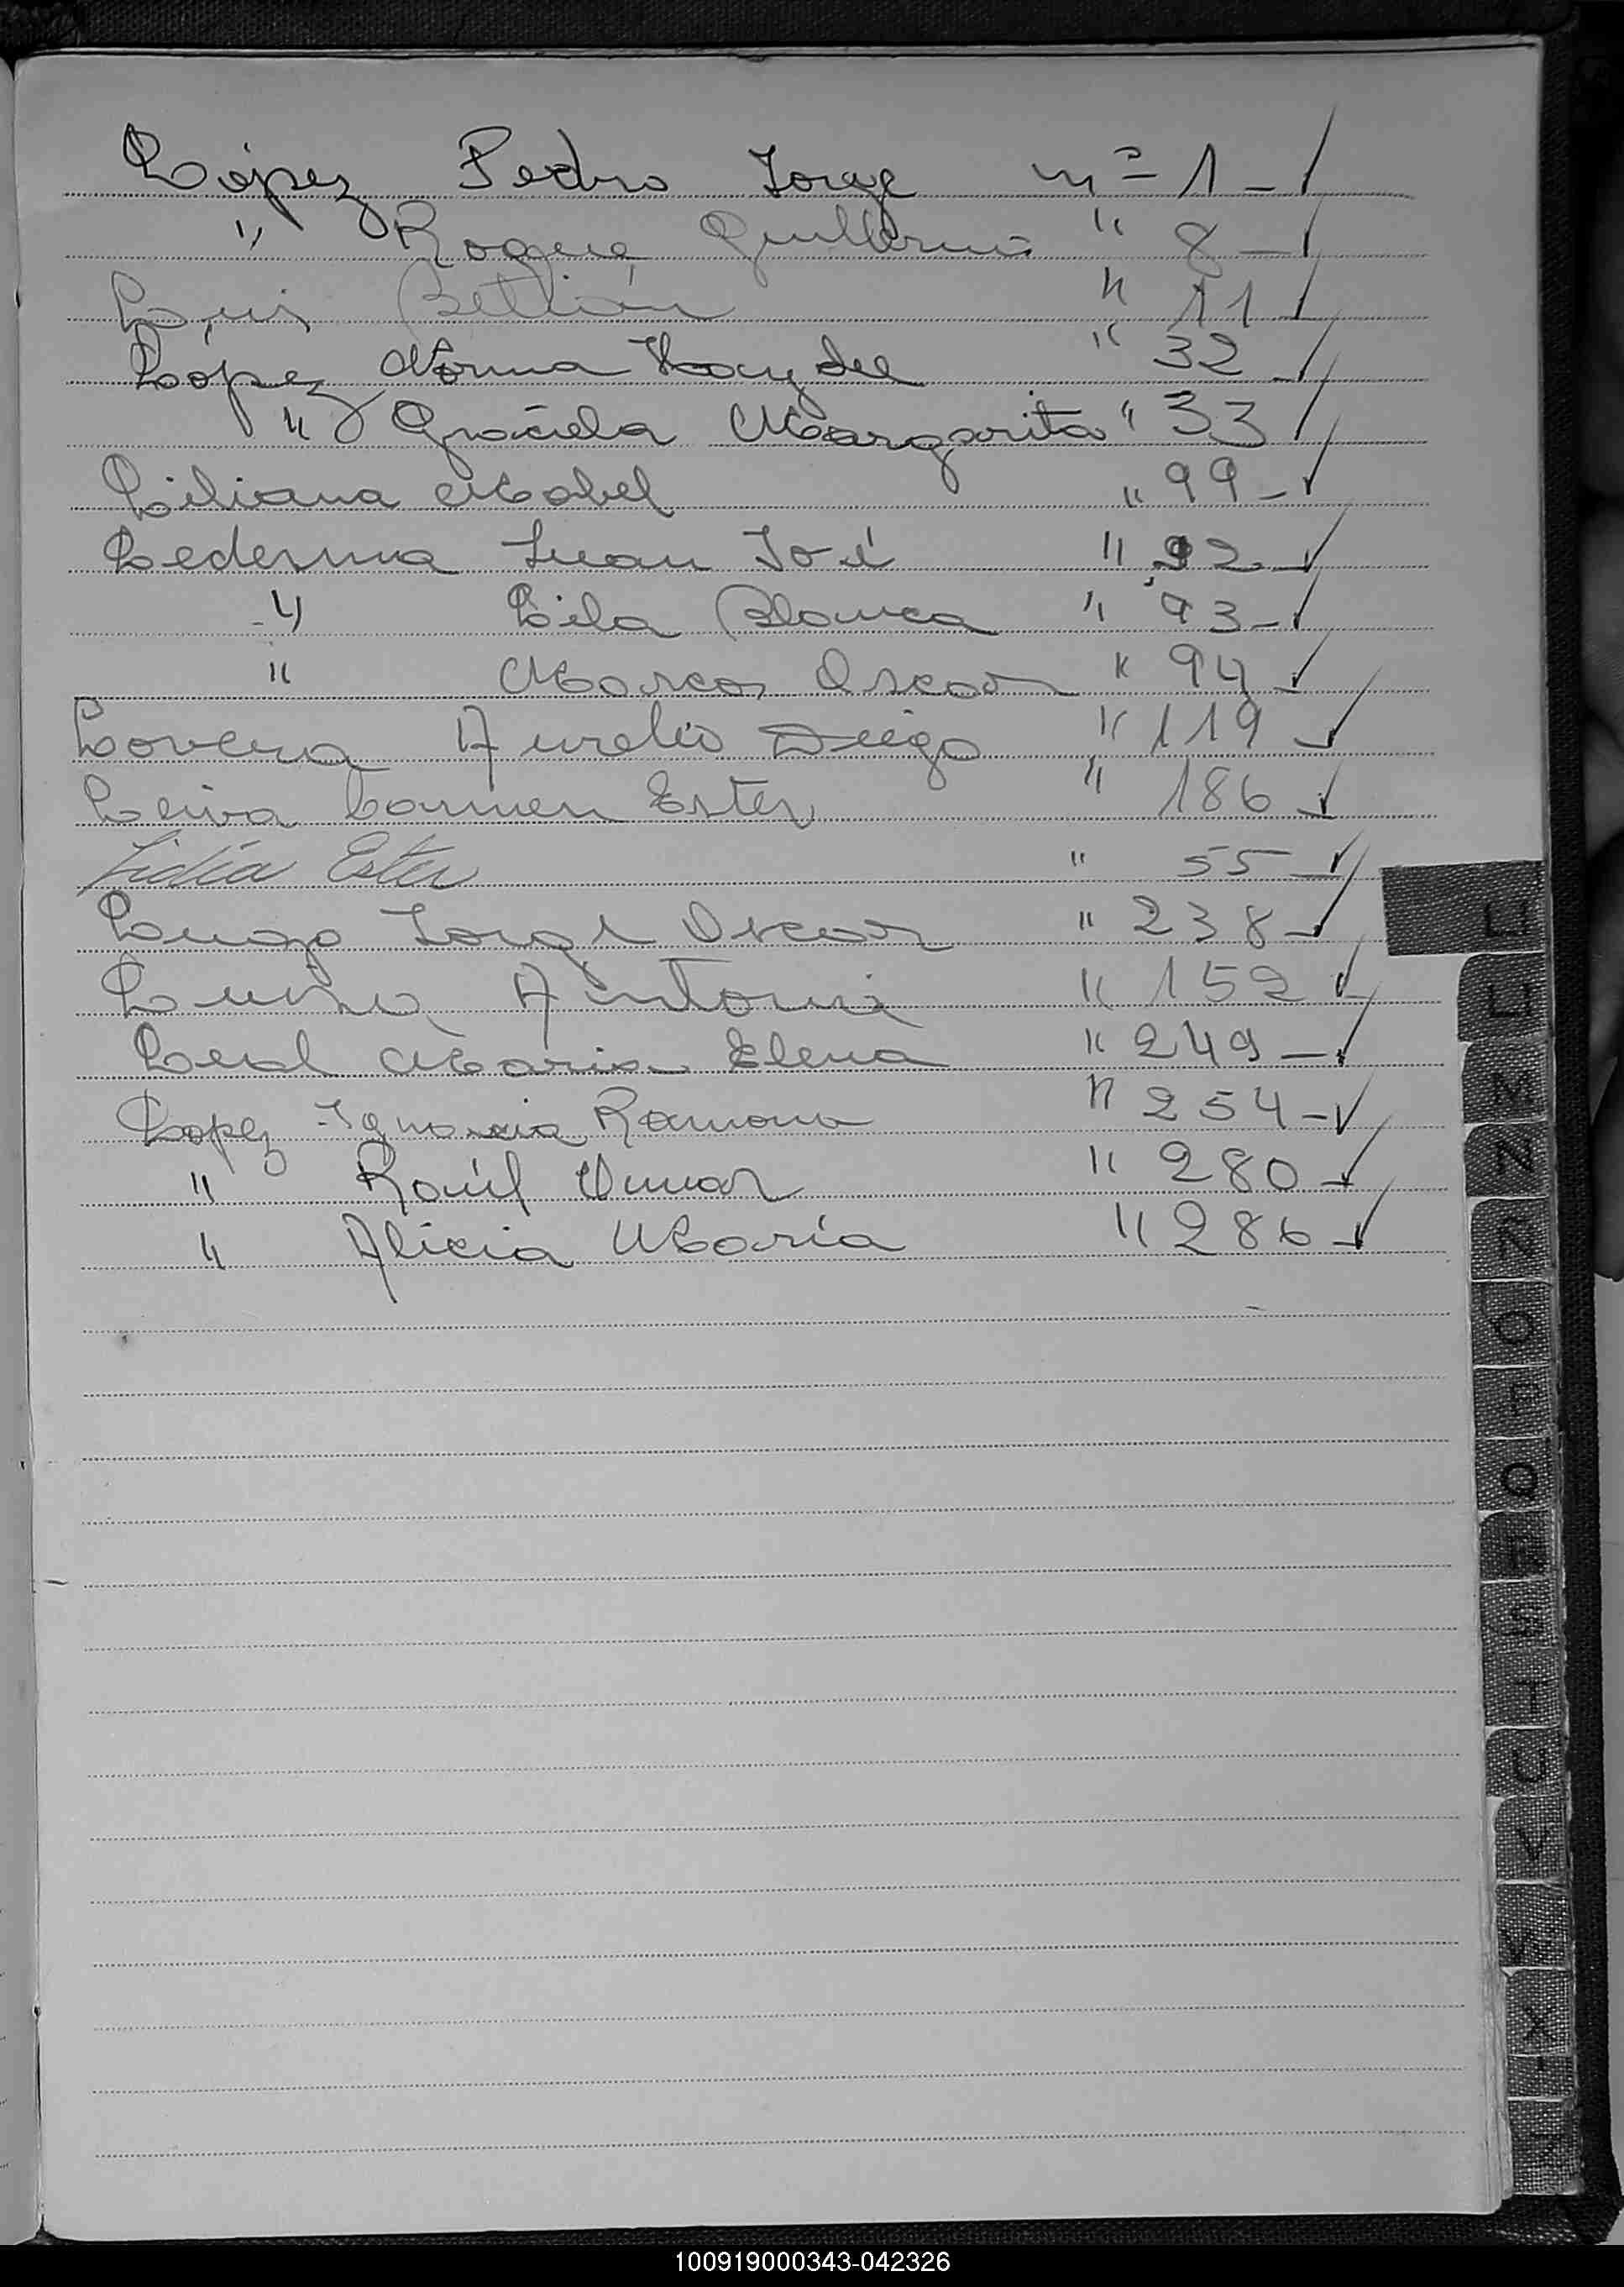 López Pedro Jorge nº 1 -
" Roque Guillermo " 8 -
Luis Beltrán " 11
López Norma Haydee " 32 -
" Graciela Margarita " 33
Liliana Mabel " 99 -
Ledesma Juan José " 92 -
" Lila Blanca " 93 -
" Marcos Oscar " 94
Lovera Aurelio Diego " 119
Leiva Carmen Ester " 186
Lidia Ester " 55
Lugo Jorge Oscar " 238
Antonia " 152
Leal Maria Elena " 249 -
Lopez Ignacia Ramona " 254 -
" Raúl Omar " 280
" Alicia María " 286
L
LL
M
N
Ñ
O
P
Q
R
S
T
U
V
W
X
100919000343-042326